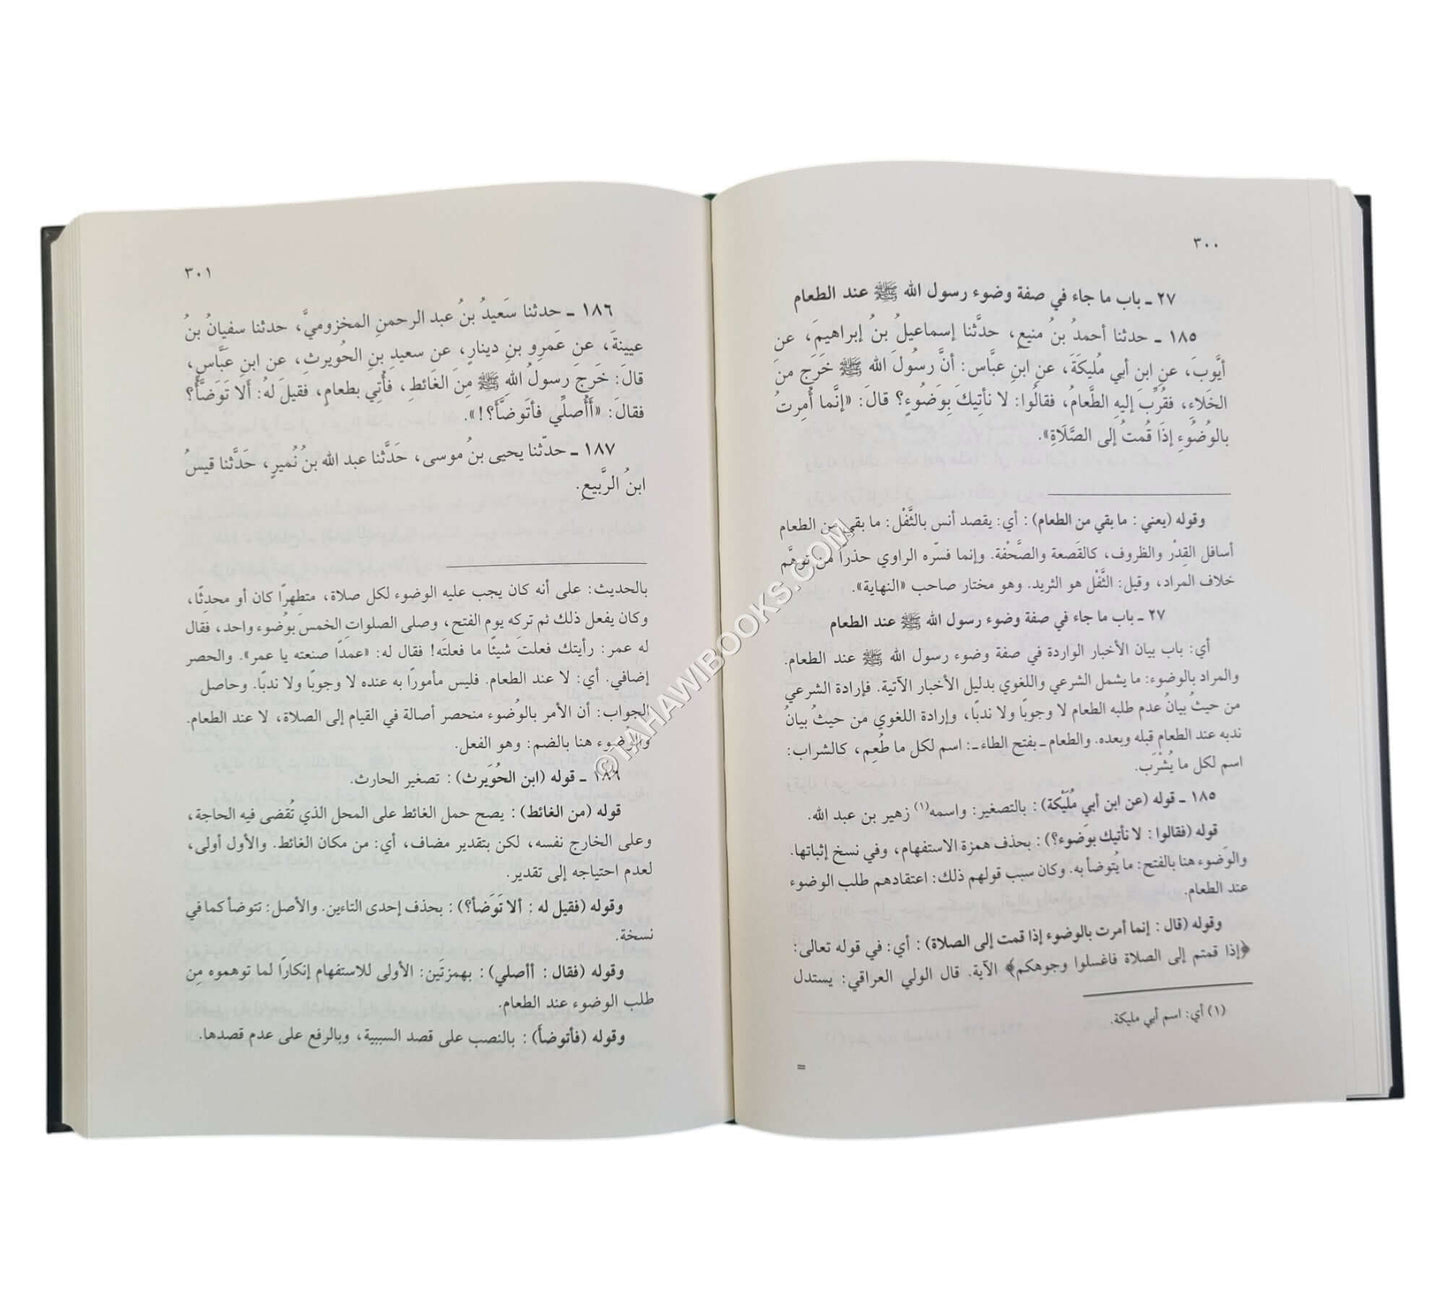 ٣٠٠
٢٧ ـ باب ما جاء في صفة وضوء رسول الله ﷺ عند الطعام
١٨٥ ـ حدثنا أحمدُ بنُ منيع، حدَّثنا إسماعيلُ بنُ إبراهيمَ، عن
أيَّوبَ، عنِ ابنِ أبي مُليكَةَ، عنِ ابنِ عبَّاس: أنَّ رسُولَ الله ﷺ خَرَج منَ
الخَلاء، فقُرِّبَ إليهِ الطَّعامُ، فقالُوا: لا نأتيكَ بِوَضُوءٍ؟ قالَ: «إنَّما أُمِرتُ
بالوُضُوءِ إذَا قُمتُ إلى الصَّلَاةِ».
وقوله (يعني: ما بقي من الطعام): أي: يقصد أنس بالثَّفْل: ما بقي من الطعام
أسافل القِدْر والظروف، كالقَصعة والصَّحْفة. وإنما فسّره الراوي حذراً من توهّم
خلاف المراد، وقيل: الثَّفْل هو الثريد. وهو مختار صاحب «النهاية».
٢٧ ـ باب ما جاء في صفة وضوء رسول الله ﷺ عند الطعام
أي: باب بيان الأخبار الواردة في صفة وضوء رسول الله ﷺ عند الطعام.
والمراد بالوضوء: ما يشمل الشرعي واللغوي بدليل الأخبار الآتية. فإرادة الشرعي
من حيثُ بيانُ عدم طلبه الطعام لا وجوبًا ولا ندبًا، وإرادة اللغوي من حيثُ بيانُ
ندبه عند الطعام قبله وبعده. والطعام ـ بفتح الطاء ـ: اسم لكل ما طُعِم، كالشراب:
اسم لكل ما يُشْرَب.
١٨٥ ـ قوله (عن ابن أبي مُلَيْكة): بالتصغير: واسمه(١) زهير بن عبد الله.
قوله (فقالوا: لا نأتيك بوَضوء؟): بحذف همزة الاستفهام، وفي نسخ إثباتها.
والوَضوء هنا بالفتح: ما يُتوضأ به. وكان سبب قولهم ذلك: اعتقادهم طلب الوضوء
عند الطعام.
وقوله (قال: إنما أمرت بالوضوء إذا قمت إلى الصلاة): أي: في قوله تعالى:
﴿إذا قمتم إلى الصلاة فاغسلوا وجوهكم﴾ الآية. قال الولي العراقي: يستدل
(١) أي: اسم أبي مليكة.
=
٣٠١
١٨٦ ـ حدثنا سَعيدُ بنُ عبد الرحمنِ المخزوميَّ، حدثنا سفيانُ بنُ
عيينةَ، عَن عَمرِو بنِ دينارٍ، عَن سعيدِ بنِ الحُويرثِ، عَنِ ابنِ عَبَّاسٍ،
قالَ: خَرجَ رسولُ اللهِ ﷺ مِنَ الغَائطِ، فأُتِي بطعامٍ، فقيلَ لهُ: ألَا تَوَضَّأُ؟
فقالَ: «أَأُصلِّي فأتوضَّأَ؟!».
١٨٧ ـ حدّثنا يحيى بنُ مُوسى، حَدَّثنا عبد الله بنُ نُميرٍ، حَدَّثنا قيسُ
ابنُ الرَّبيعِ.
بالحديث: على أنه كان يجب عليه الوضوء لكل صلاة، متطهرًا كان أو محدثًا،
وكان يفعل ذلك ثم تركه يوم الفتح، وصلى الصلواتِ الخمسَ بوُضوء واحد، فقال
له عمر: رأيتك فعلتَ شيئًا ما فعلتَه! فقال له: «عمدًا صنعته يا عمر». والحصر
إضافي. أي: لا عند الطعام. فليس مأمورًا به عنده لا وجوبًا ولا ندبًا. وحاصل
الجواب: أن الأمر بالوُضوء منحصر أصالة في القيام إلى الصلاة، لا عند الطعام.
والوُضوء هنا بالضم: وهو الفعل.
١٨٦ ـ قوله (ابن الحُوَيرث): تصغير الحارث.
قوله (من الغائط): يصح حمل الغائط على المحل الذي تُقضى فيه الحاجة،
وعلى الخارج نفسه، لكن بتقدير مضاف، أي: من مكان الغائط. والأول أولى،
لعدم احتياجه إلى تقدير.
وقوله (فقيل له: ألا تَوَضأ؟): بحذف إحدى التاءين. والأصل: تتوضأ كما في
نسخة.
وقوله (فقال: أأصلي): بهمزتَين: الأولى للاستفهام إنكارًا لما توهموه مِن
طلب الوضوء عند الطعام.
وقوله (فأتوضأ): بالنصب على قصد السببية، وبالرفع على عدم قصدها.
©TAHAWIBOOKS.COM